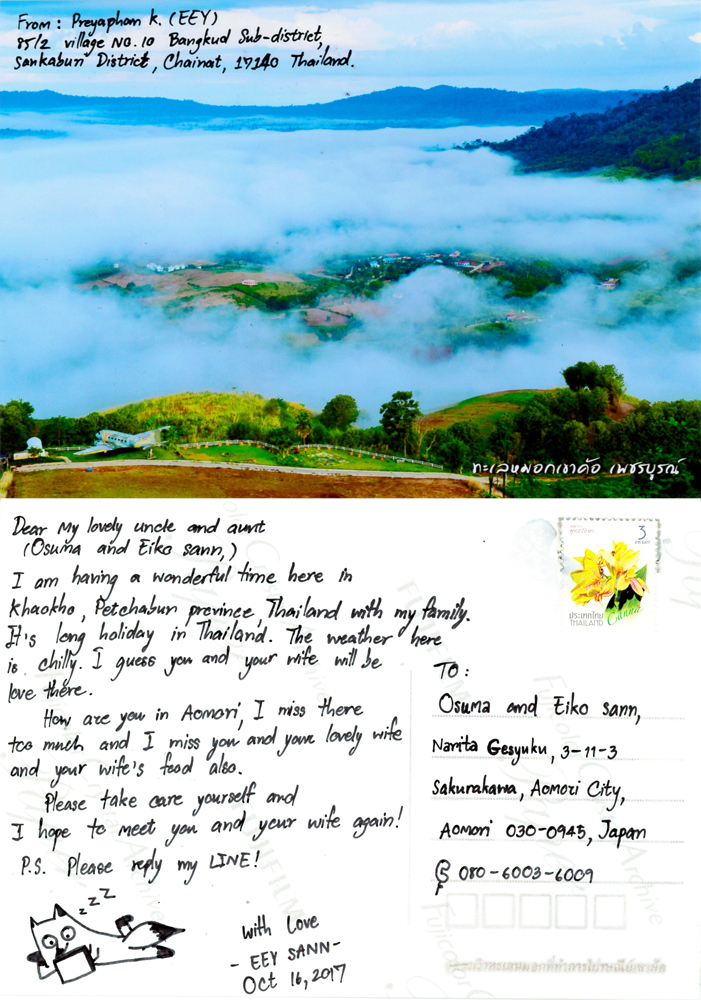 From: Preyaphan K. (EEY)
85/2 village NO. 10 Bangkud Sub-district,
Sankaburi District, Chainat, 17140 Thailand.
ทะเลหมอกเขาค้อ เพชรบูรณ์
Dear My lovely uncle and aunt
(Osuma and Eiko sann,)
I am having a wonderful time here in
Khaokho, Petchabun province, Thailand with my family.
It's long holiday in Thailand. The weather here
is chilly. I guess you and your wife will be
love there.
How are you in Aomori, I miss there
too much and I miss you and your lovely wife
and your wife's food also.
Please take care yourself and
I hope to meet you and your wife again!
P.S. Please reply my LINE!
z z z
with Love
- EEY SANN -
Oct 16, 2017
3
ประเทศไทย
THAILAND
TO:
Osuma and Eiko sann,
Narita Gesyuku, 3-11-3
Sakurakawa, Aomori City,
Aomori 030-0945, Japan
080-6003-6009